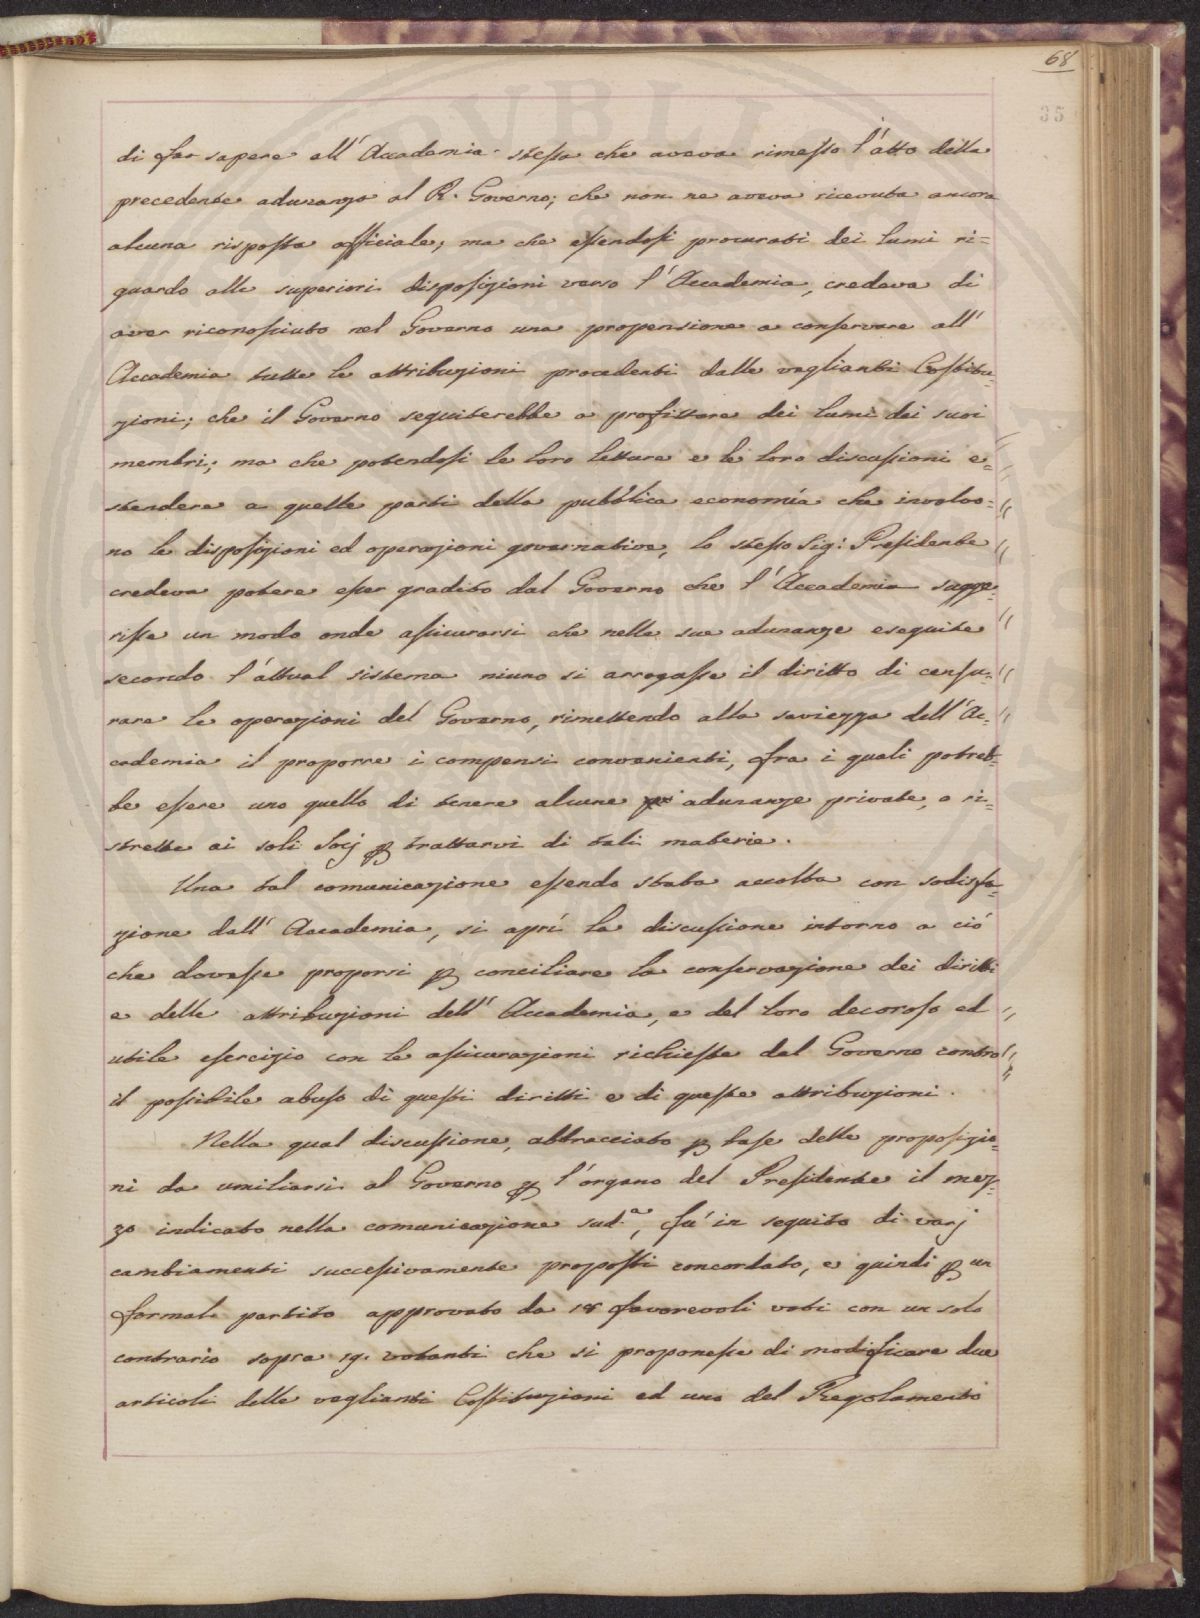 68
35
di far sapere all' Accademia stessa che aveva rimesso l'atto della
precedente adunanza al R. Governo; che non ne aveva ricevuta ancora
alcuna risposta officiale; ma che essendosi procurati dei lumi ri=
guardo alle superiori disposizioni verso l' Accademia, credeva di
aver riconosciuto nel Governo una propensione a conservare all'
Accademia tutte le attribuzioni procedenti dalle veglianti Costitu=
zioni; che il Governo seguiterebbe a profittare dei lumi dei suoi
membri; ma che potendosi le loro letture e le loro discussioni e=
stendere a quelle parti della pubblica economía che involvo=
no le disposizioni ed operazioni governative, lo stesso Sig: Presidente
credeva potere esser gradito dal Governo che l' Accademia sugge=
risse un modo onde assicurarsi che nelle sue adunanze eseguite
secondo l'attual sistema niuno si arrogasse il diritto di censu=
rare le operazioni del Governo, rimettendo alla saviezza dell' Ac=
cademia il proporre i compensi convenienti, fra i quali potreb=
be essere uno quello di tenere alcune adunanze private, o ri=
strette ai soli Socj p trattarvi di tali materie.
Una tal comunicazione essendo stata accolta con sodisfa=
zione dall' Accademia, si aprí la discussione intorno a ció
che dovesse proporsi p conciliare la conservazione dei diritti
e delle attribuzioni dell' Accademia, e del loro decoroso ed
utile esercizio con le assicurazioni richieste dal Governo contro
il possibile abuso di questi diritti e di queste attribuzioni.
Nella qual discussione, abbracciato p base delle proposizio=
ni da umiliarsi al Governo p l'organo del Presidente il mez=
zo indicato nella comunicazione sud.a, fu' in seguito di varj
cambiamenti successivamente proposti concordato, e quindi p un
formale partito approvato da 18 favorevoli voti con un solo
contrario sopra 19. votanti che si proponesse di modificare due
articoli delle veglianti Costituzioni ed uno del Regolamento